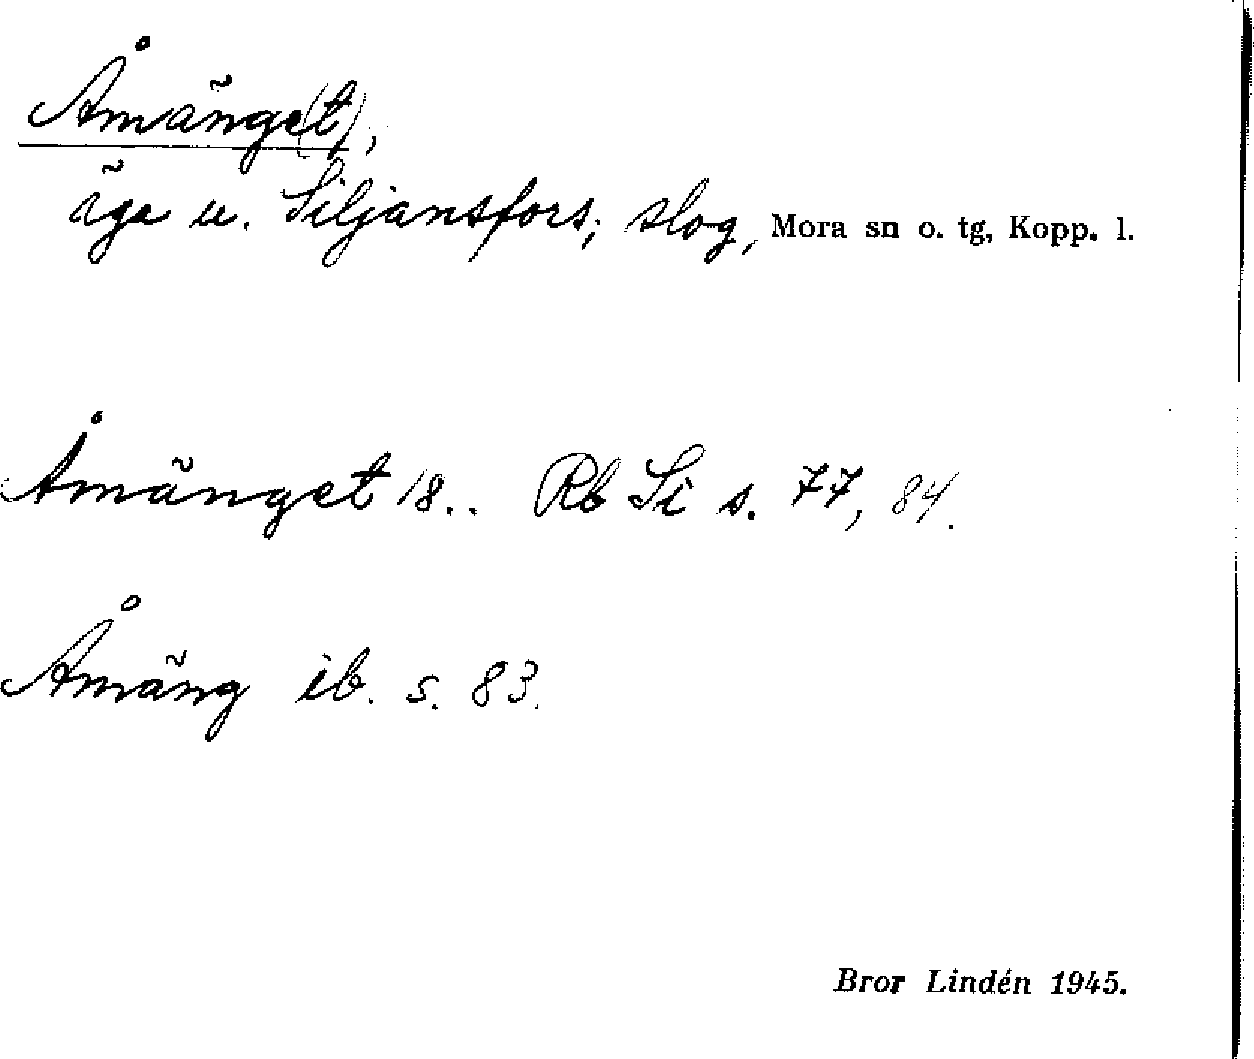 Åmänge(t),
äga u. Siljansfors; slog, Mora sn o. tg, Kopp. l.
Åmänget 18.. Rb Si s. 77, 84.
Åmäng ib. s. 83.
Bror Lindén 1945.